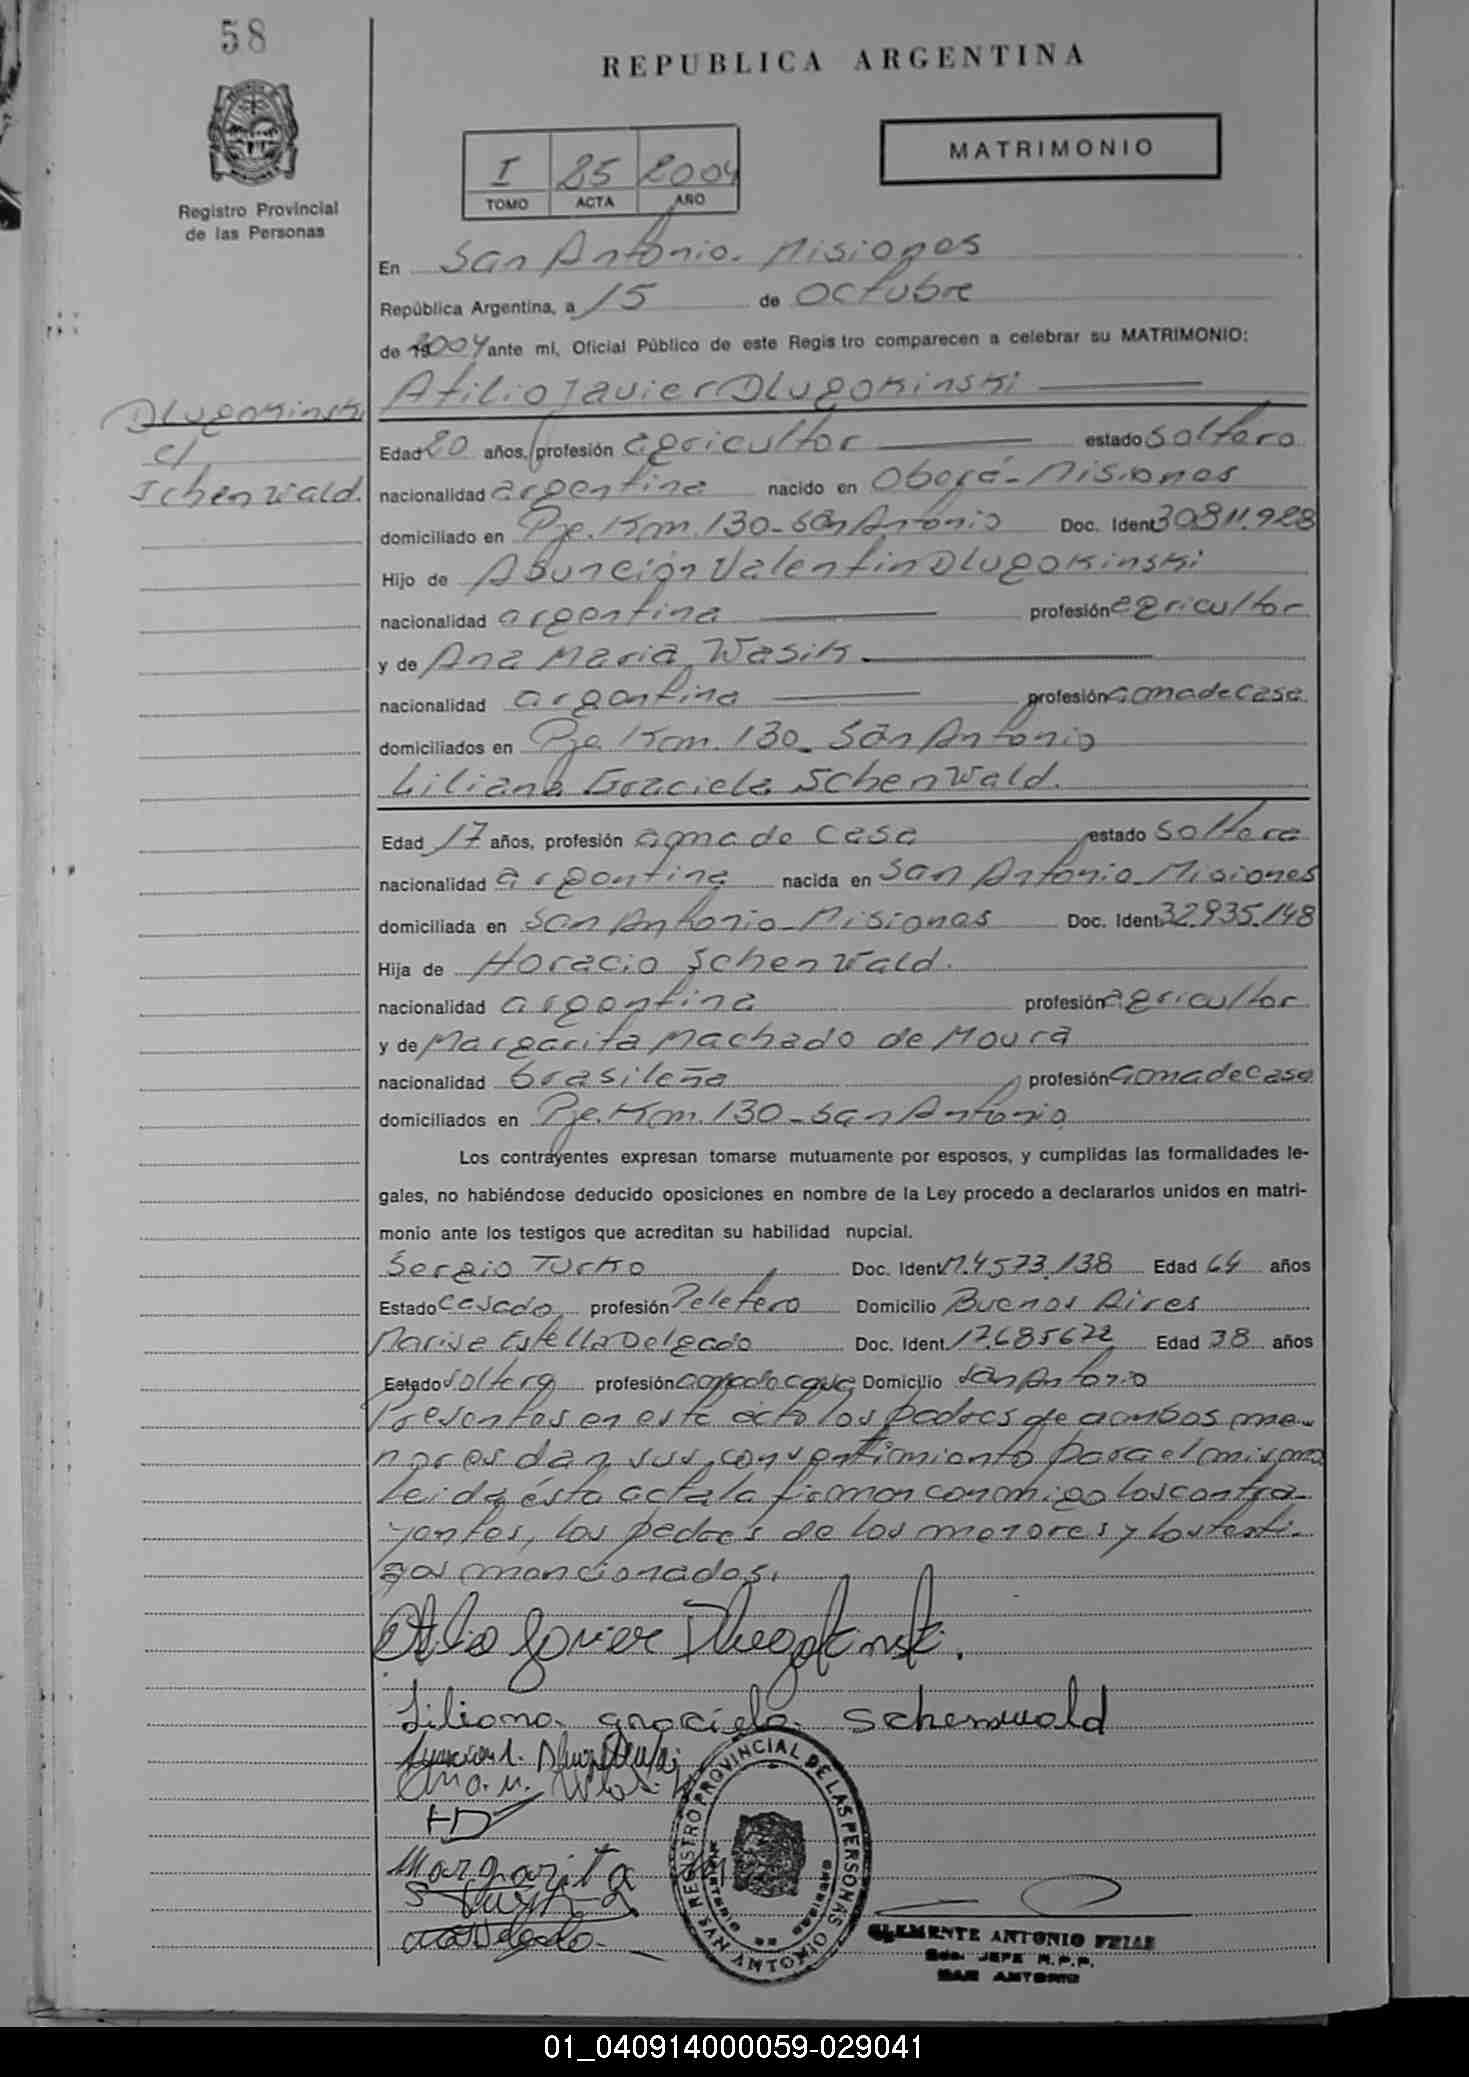 58
REPUBLICA ARGENTINA
Registro Provincial
de las Personas
I 25 2004
TOMO ACTA AÑO
MATRIMONIO
En San Antonio. Misiones
República Argentina, a 15 de Octubre
de 2004 ante mí, Oficial Público de este Registro comparecen a celebrar su MATRIMONIO:
Atilio Javier Dlugokinski
Dlugokinski
c/
Schenwald.
Edad 20 años, profesión agricultor estado soltero
nacionalidad argentina nacido en Oberá - Misiones
domiciliado en Pje. Km. 130 - San Antonio Doc. Ident 30.811.928
Hijo de Asunción Valentin Dlugokinski
nacionalidad argentina profesión agricultor
y de Ana Maria Wasik
nacionalidad argentina profesión ama de casa
domiciliados en Pje Km. 130 - San Antonio
Liliana Graciela Schenwald.
Edad 17 años, profesión ama de casa estado soltera
nacionalidad argentina nacida en San Antonio - Misiones
domiciliada en San Antonio - Misiones Doc. Ident. 32.935.148
Hija de Horacio Schenwald.
nacionalidad argentina profesión agricultor
y de Margarita Machado de Moura
nacionalidad brasileña profesión ama de casa
domiciliados en Pje. Km. 130 - San Antonio
Los contrayentes expresan tomarse mutuamente por esposos, y cumplidas las formalidades le-
gales, no habiéndose deducido oposiciones en nombre de la Ley procedo a declararlos unidos en matri-
monio ante los testigos que acreditan su habilidad nupcial.
Sergio Turko Doc. Ident M.4573.138 Edad 64 años
Estado casado profesión Peletero Domicilio Buenos Aires
Marisa Estella Delgado Doc. Ident. 17.685672 Edad 38 años
Estado soltera profesión ama de casa Domicilio San Antonio
Presentes en este acto los padres de ambos me-
nores dan sus consentimiento para el mismo
leida ésta acta la firman conmigo los contra-
yentes, los padres de los menores y los testi-
gos mencionados.
Atilio Javier Dlugokinski.
Liliana graciela Schenwald
Ana. M.
HD
Margarita
REGISTRO PROVINCIAL DE LAS PERSONAS
SAN ANTONIO
CLEMENTE ANTONIO
JEFE R.P.P.
SAN ANTONIO
01_040914000059-029041